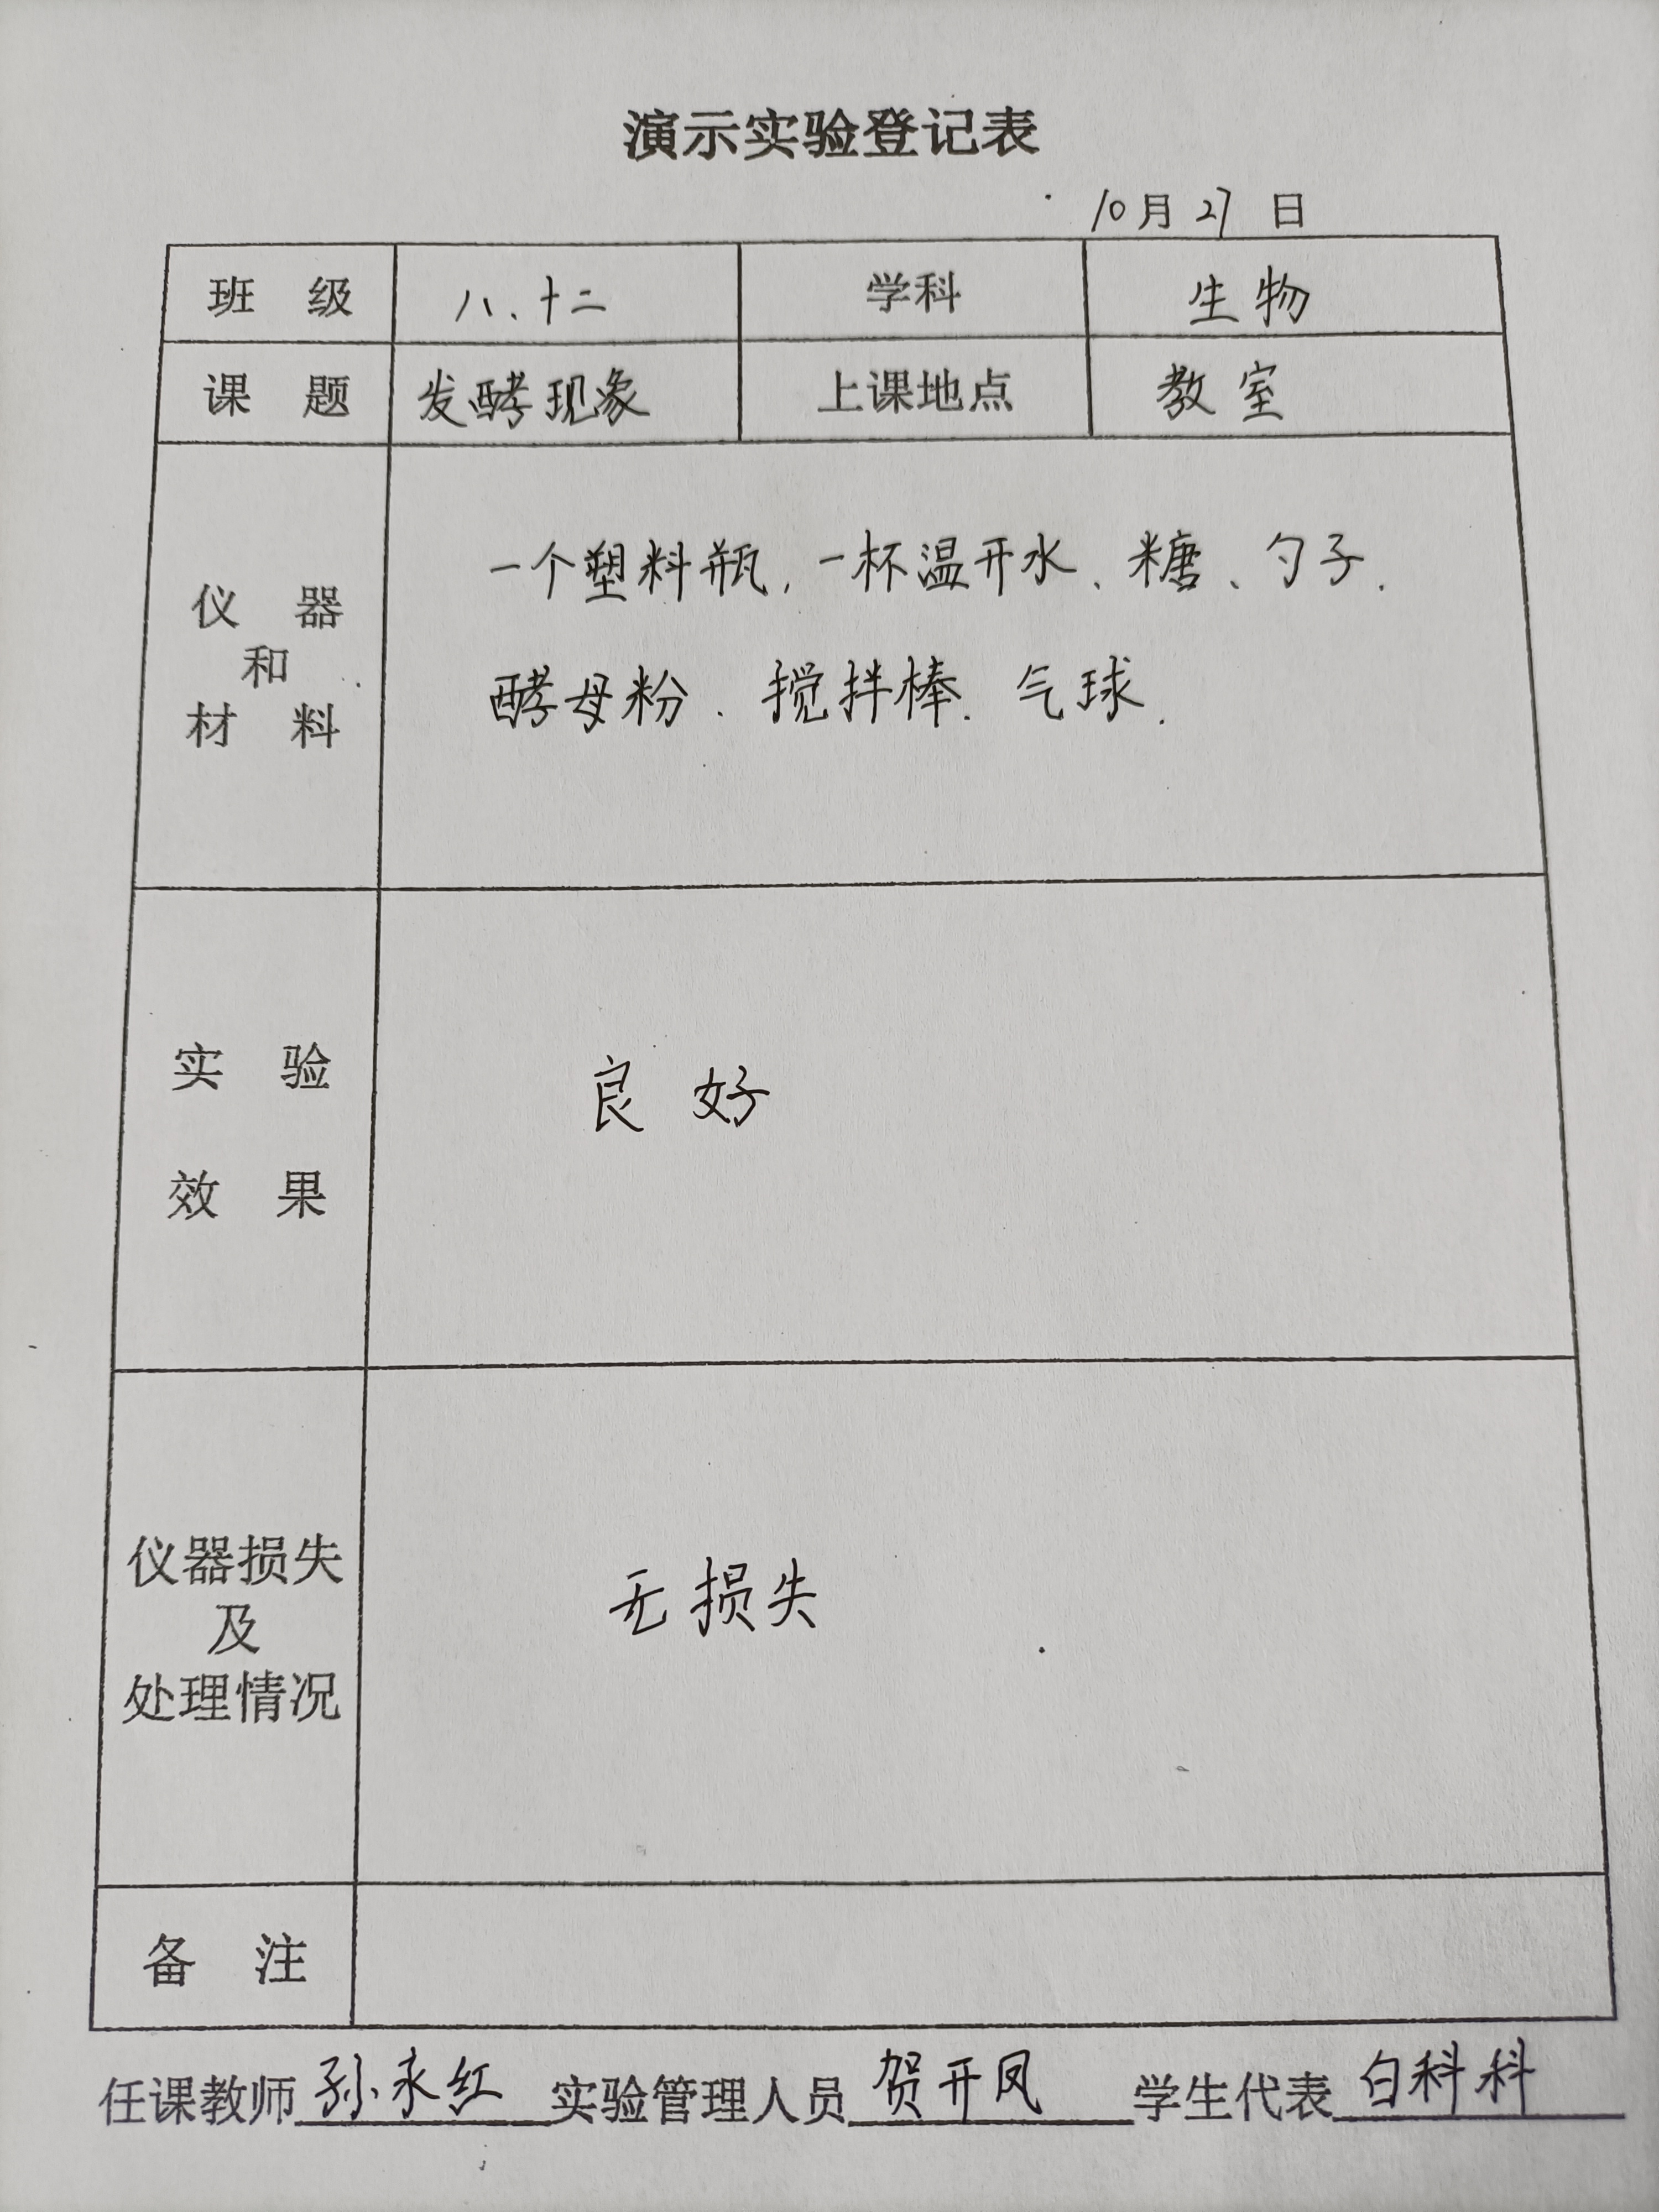 演示实验登记表
10月27日
班级 八、十二 学科 生物
课题 发酵现象 上课地点 教室
仪器
和
材料
一个塑料瓶,一杯温开水、糖、勺子.
酵母粉.搅拌棒.气球.
实验
效果
良好
仪器损失
及
处理情况
无损失
备注
任课教师 孙永红 实验管理人员 贺开凤 学生代表 白科科